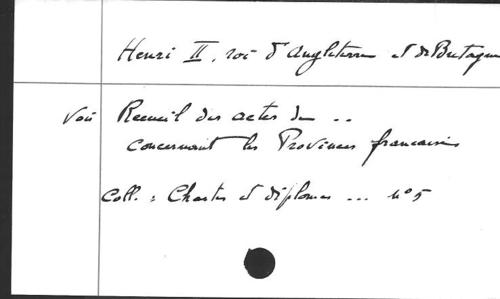 Henri II, roi d'Angleterre et de Bretagne
Voir Recueil des actes de ..
concernant les Provinces françaises
Coll. : Chartes et diplomes ... n° 5